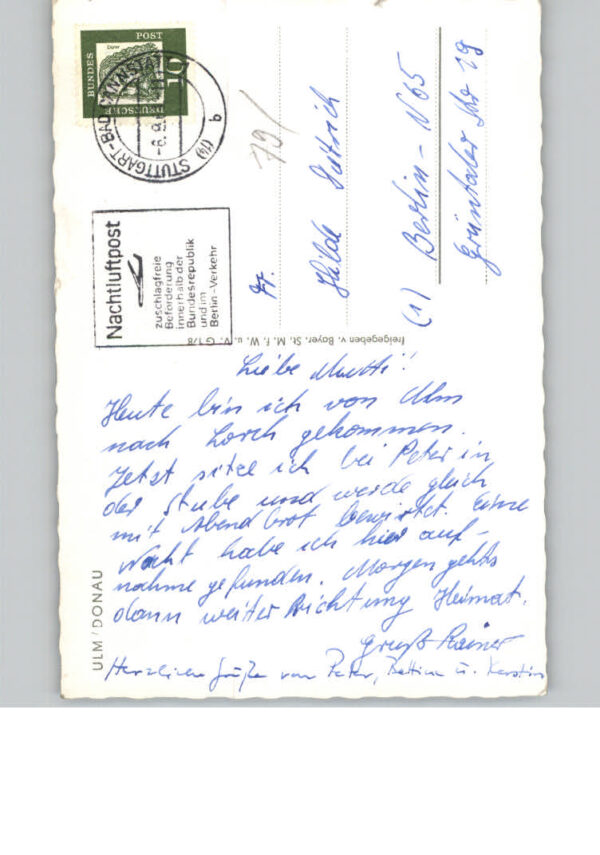 Dürer
DEUTSCHE
BUNDES
POST
10
(14) STUTTGART-BAD CANNSTATT
b
Nachtluftpost
zuschlagfreie
Beförderung
innerhalb der
Bundesrepublik
und im
Berlin-Verkehr
79/
Fr.
Hilde Dittrich
(1) Berlin-N65
Grüntaler Str 19
freigegeben v. Bayer. St. M. f. W. u. V. G 1/8
Liebe Mutti!
Heute bin ich von Ulm
nach Lorch gekommen.
Jetzt sitze ich bei Peter in
der Stube und werde gleich
mit Abendbrot bewirtet. Eine
Nacht habe ich hier auf-
nahme gefunden. Morgen gehts
dann weiter Richtung Heimat.
Gruß Rainer
Herzliche Grüße von Peter, Bettina u. Kerstin
ULM/DONAU